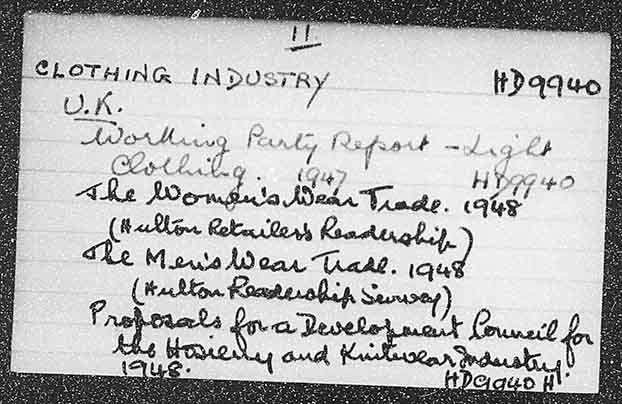 11.
CLOTHING INDUSTRY HD9940
U.K.
Working Party Report - Light
Clothing. 1947 HD9940
The Women's Wear Trade. 1948
(Hulton Retailers Readership)
The Men's Wear Trade. 1948
(Hulton Readership Survey)
Proposals for a Development Council for
the Hosiery and Knitwear Industry.
1948. HD9940 H